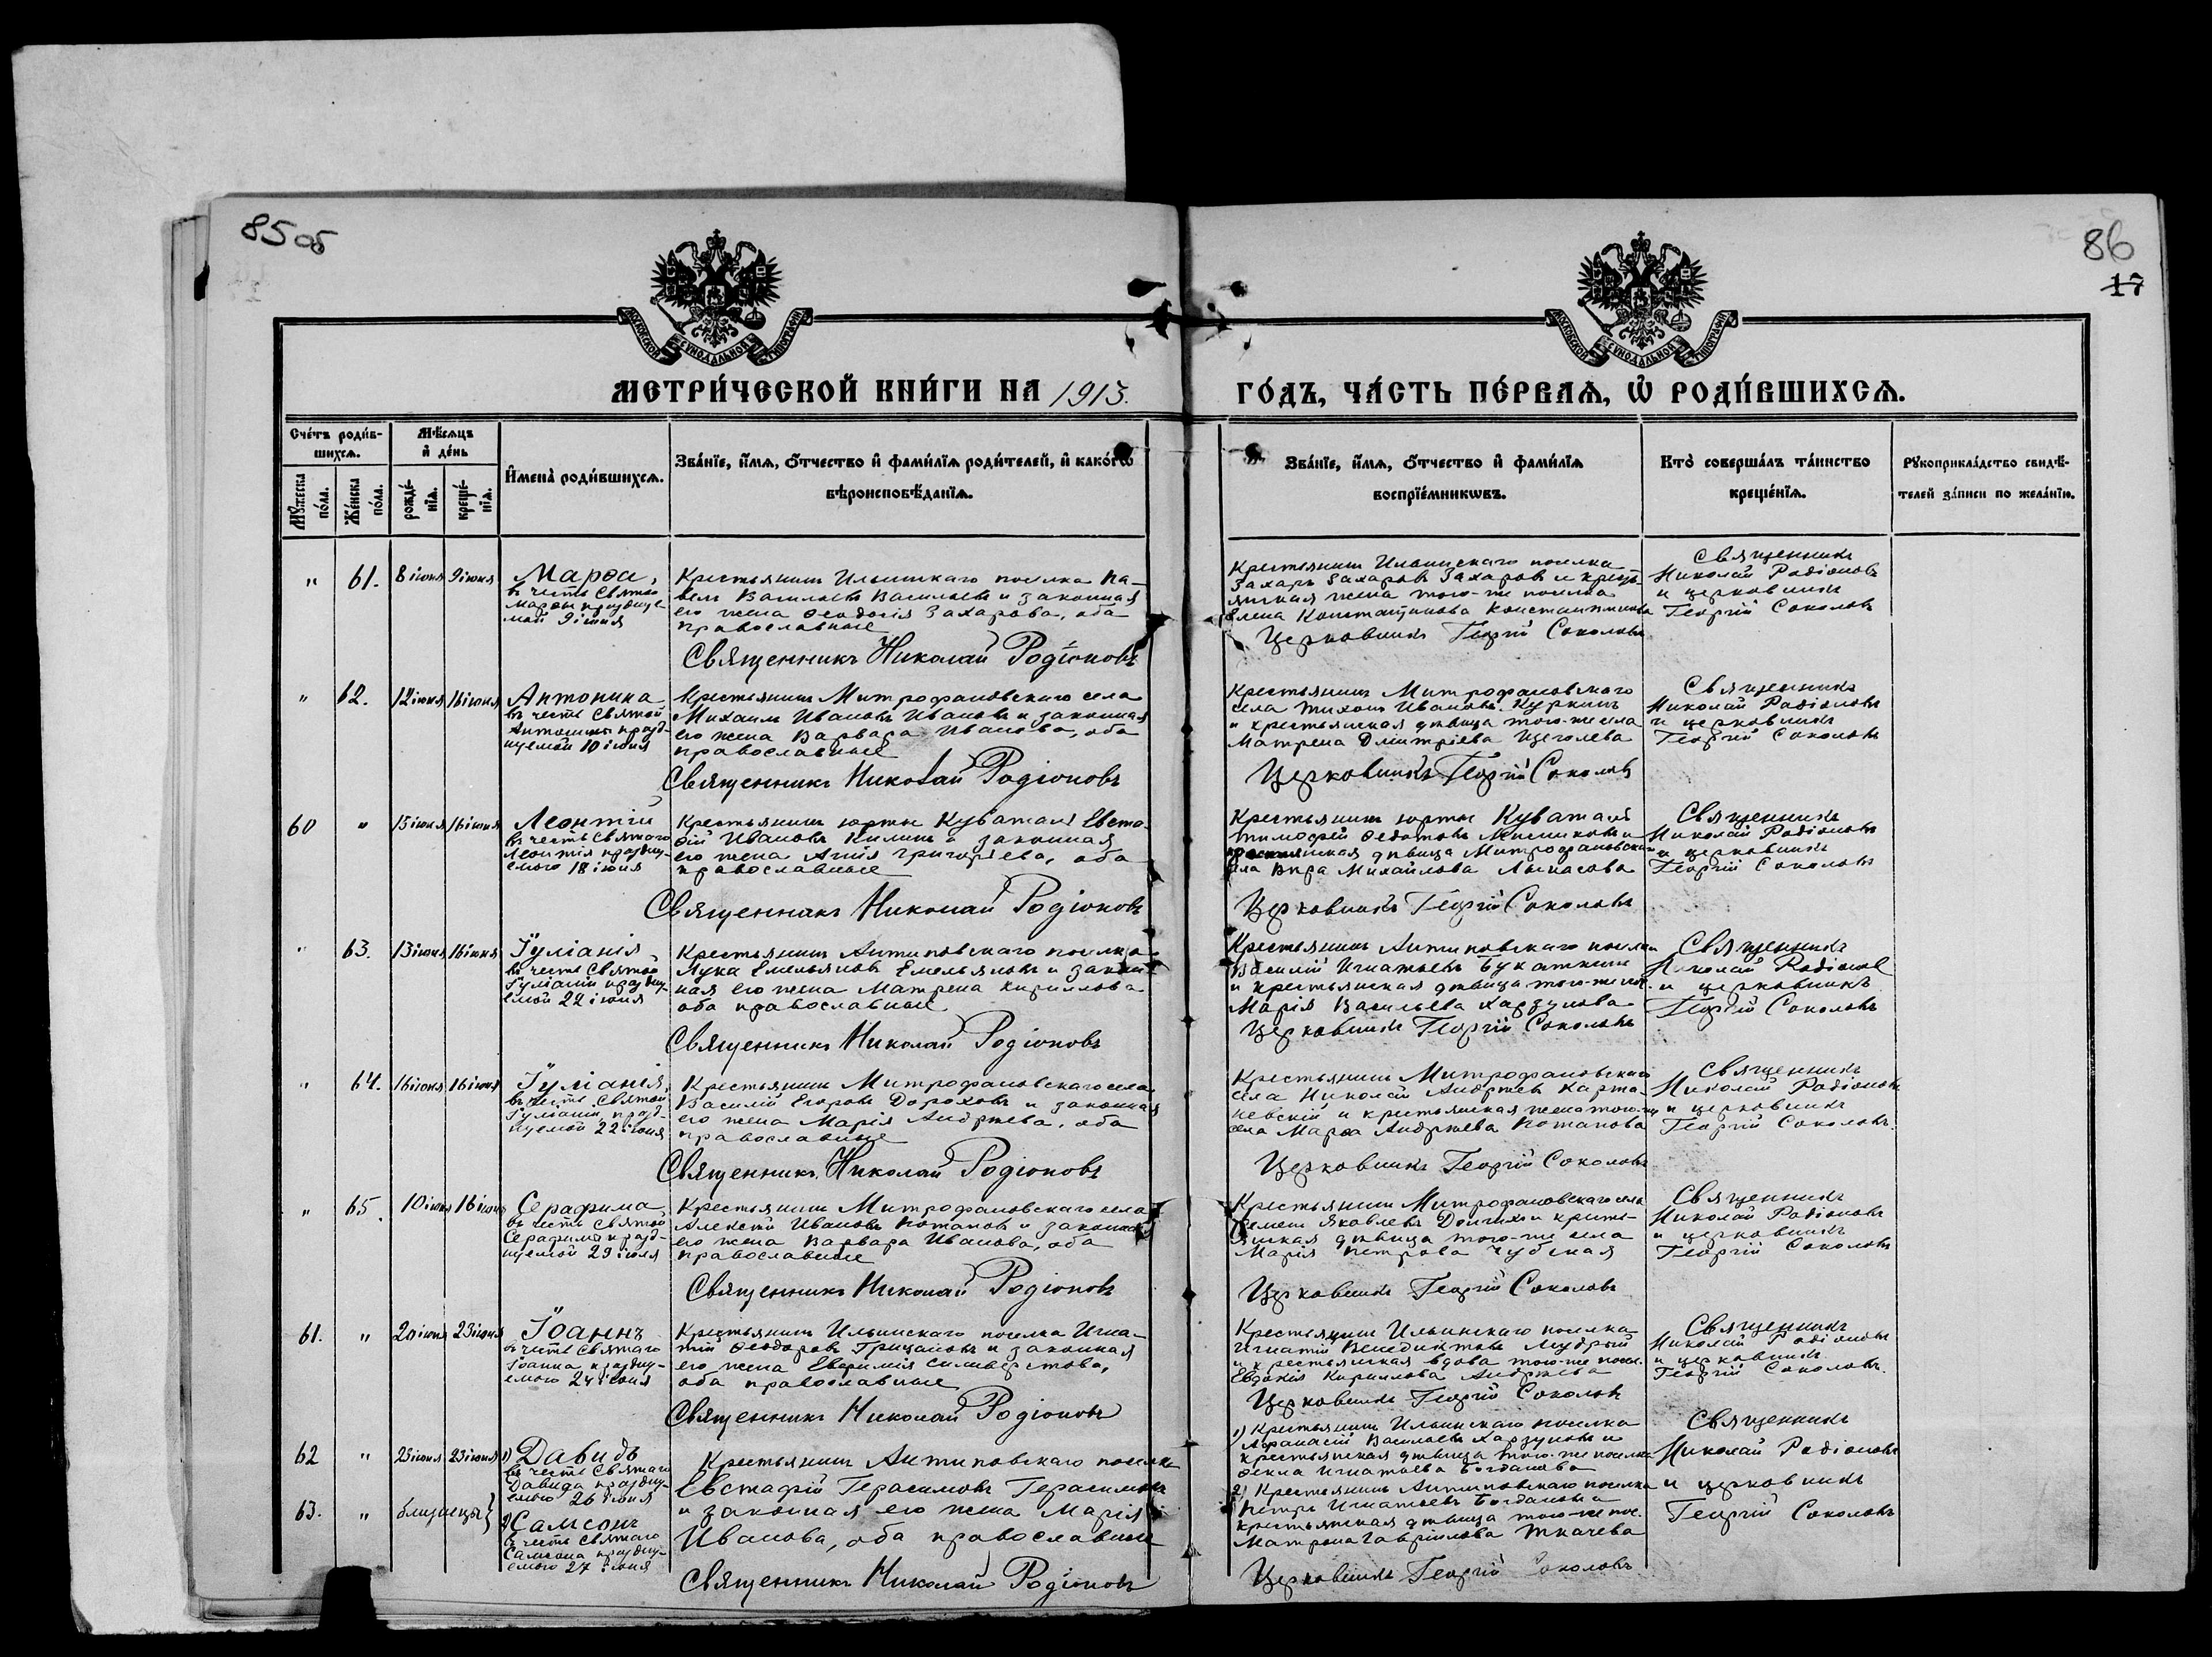 85 об
86
17
МОСКОВСКОЙ СѴНОДАЛЬНОЙ ТИПОГРАФІИ
МОСКОВСКОЙ СѴНОДАЛЬНОЙ ТИПОГРАФІИ
МЕТРИ́ЧЕСКОЙ КНИ́ГИ НА 1913.
ГО́ДЪ, ЧА́СТЬ ПЕ́РВАѦ, Ѽ РОДИ́ВШИХСѦ.
Сче́тъ роди́в-
шихсѧ.
Мꙋжеска по́ла.
Же́нска по́ла.
Мѣ́сѧцъ
и҆ де́нь
рожде́-
нїѧ.
креще́-
нїѧ.
И҆мена̀ роди́вшихсѧ.
Зва́нїе, и҆́мѧ, ѻ҆́тчество и҆ фами́лїѧ роди́телей, и҆ како́гѡ
вѣроисповѣ́данїѧ.
Зва́нїе, и҆́мѧ, ѻ҆́тчество и҆ фами́лїѧ
воспрїе́мникѡвъ.
Кто̀ соверша́лъ та́инство
креще́нїѧ.
Рꙋкоприкла́дство свидѣ́-
телей за́писи по жела́нїю.
" 61. 8 іюня 9 іюня
Марѳа,
въ честь Святой
Марѳы празднуе-
мой 9 іюня
Крестьянинъ Ильинскаго поселка Па-
велъ Васильевъ Васильевъ и законная
его жена Ѳеодосія Захарова, оба
православные
Священникъ Николай Родіоновъ
Крестьянинъ Ильинскаго поселка
Захаръ Захаровъ Захаровъ и кресть-
янская жена того-же поселка
Елена Константинова Константинова
Церковникъ Георгій Соколовъ
Священникъ
Николай Родіоновъ
и церковникъ
Георгій Соколовъ
" 62. 12 іюня 16 іюня
Антонина
въ честь Святой
Антонины празд-
нуемой 10 іюня
Крестьянинъ Митрофановскаго села
Михаилъ Ивановъ Ивановъ и законная
его жена Варвара Иванова, оба
православные
Священникъ Николай Родіоновъ
Крестьянинъ Митрофановскаго
села Тихонъ Ивановъ Куркинъ
и крестьянская дѣвица того-же села
Матрена Дмитріева Щеголева
Церковникъ Георгій Соколовъ
Священникъ
Николай Родіоновъ
и церковникъ
Георгій Соколовъ
60 " 15 іюня 16 іюня
Леонтій
въ честь Святаго
Леонтія праздну-
емаго 18 іюня
Крестьянинъ юрты Куваталъ Евста-
фій Ивановъ Килинъ и законная
его жена Анна Григорьева, оба
православные
Священникъ Николай Родіоновъ
Крестьянинъ юрты Куваталъ
Тимофей Ѳедотовъ и
крестьянская дѣвица Митрофановскаго
села Вѣра Михайлова
Церковникъ Георгій Соколовъ
Священникъ
Николай Родіоновъ
и церковникъ
Георгій Соколовъ
" 63. 13 іюня 16 іюня
Іуліанія,
въ честь Святой
Іуліаніи праздну-
емой 22 іюня
Крестьянинъ Антиповскаго поселка
Лука Емельяновъ Емельяновъ и закон-
ная его жена Матрена Кириллова
оба православные
Священникъ Николай Родіоновъ
Крестьянинъ Антиповскаго поселка
Василій Игнатьевъ Букаткинъ
и крестьянская дѣвица того-же пос.
Марія Васильева Харзулова
Церковникъ Георгій Соколовъ
Священникъ
Николай Родіоновъ
и церковникъ
Георгій Соколовъ
" 64. 16 іюня 16 іюня
Іуліанія,
въ честь Святой
Іуліаніи, празд-
нуемой 22 іюня
Крестьянинъ Митрофановскаго села
Василій Егоровъ Дороховъ и законная
его жена Марія Андреева, оба
православные
Священникъ Николай Родіоновъ
Крестьянинъ Митрофановскаго
села Николай Андреевъ Карта-
певскій и крестьянская жена того-же
села Марѳа Андреева Потапова
Церковникъ Георгій Соколовъ
Священникъ
Николай Родіоновъ
и церковникъ
Георгій Соколовъ.
" 65. 10 іюня 16 іюня
Серафима
въ честь Святой
Серафимы празд-
нуемой 29 іюля
Крестьянинъ Митрофановскаго села
Алексѣй Ивановъ Потаповъ и законная
его жена Варвара Иванова, оба
православные
Священникъ Николай Родіоновъ
Крестьянинъ Митрофановскаго села
Семенъ Яковлевъ и кресть-
янская дѣвица того-же села
Марія Петрова Чубская
Церковникъ Георгій Соколовъ
Священникъ
Николай Родіоновъ
и церковникъ
Георгій Соколовъ
61. " 20 іюня 23 іюня
Іоаннъ
въ честь Святаго
Іоанна праздну-
емаго 24 іюня
Крестьянинъ Ильинскаго поселка Игна-
тій Ѳеодоровъ Грицановъ и законная
его жена Евфимія Сильверстова,
оба православные
Священникъ Николай Родіоновъ
Крестьянинъ Ильинскаго поселка
Игнатій Венедиктовъ Мудрый
и крестьянская вдова того-же посел.
Евдокія Кириллова Андреева
Церковникъ Георгій Соколовъ
Священникъ
Николай Родіоновъ
и церковникъ
Георгій Соколовъ.
62 " 23 іюня 23 іюня
63. " близнецы}
1) Давидъ
въ честь Святаго
Давида праздну-
емаго 26 іюня
2) Самсонъ
въ честь Святаго
Самсона праздну-
емаго 27 іюня
Крестьянинъ Антиповскаго поселка
Евстафій Герасимовъ Герасимовъ
и законная его жена Марія
Иванова, оба православные
Священникъ Николай Родіоновъ
1) Крестьянинъ Ильинскаго поселка
Афанасій Васильевъ Харзуновъ и
крестьянская дѣвица того-же поселка
Ѳекла Игнатьева Богданова
2) Крестьянинъ Антиповскаго поселка
Петръ Игнатьевъ Богдановъ и
крестьянская дѣвица того-же пос.
Матрона Гавріилова Ткачева
Церковникъ Георгій Соколовъ.
Священникъ
Николай Родіоновъ
и церковникъ
Георгій Соколовъ